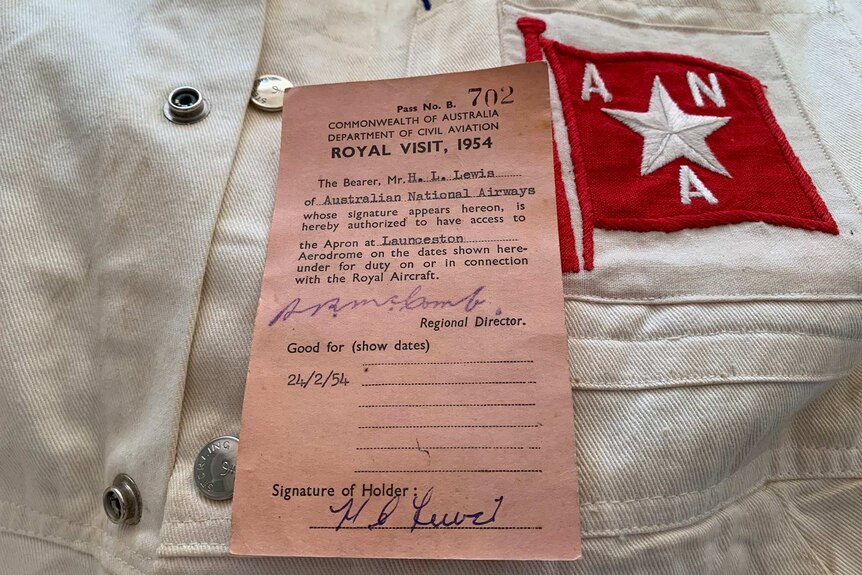 Pass No. B. 702
COMMONWEALTH OF AUSTRALIA
DEPARTMENT OF CIVIL AVIATION
ROYAL VISIT, 1954
The Bearer, Mr. H. L. Lewis
of Australian National Airways
whose signature appears hereon, is
hereby authorized to have access to
the Apron at Launceston
Aerodrome on the dates shown here-
under for duty on or in connection
with the Royal Aircraft.
Regional Director.
Good for (show dates)
24/2/54
Signature of Holder:
H L Lewis
A N
A